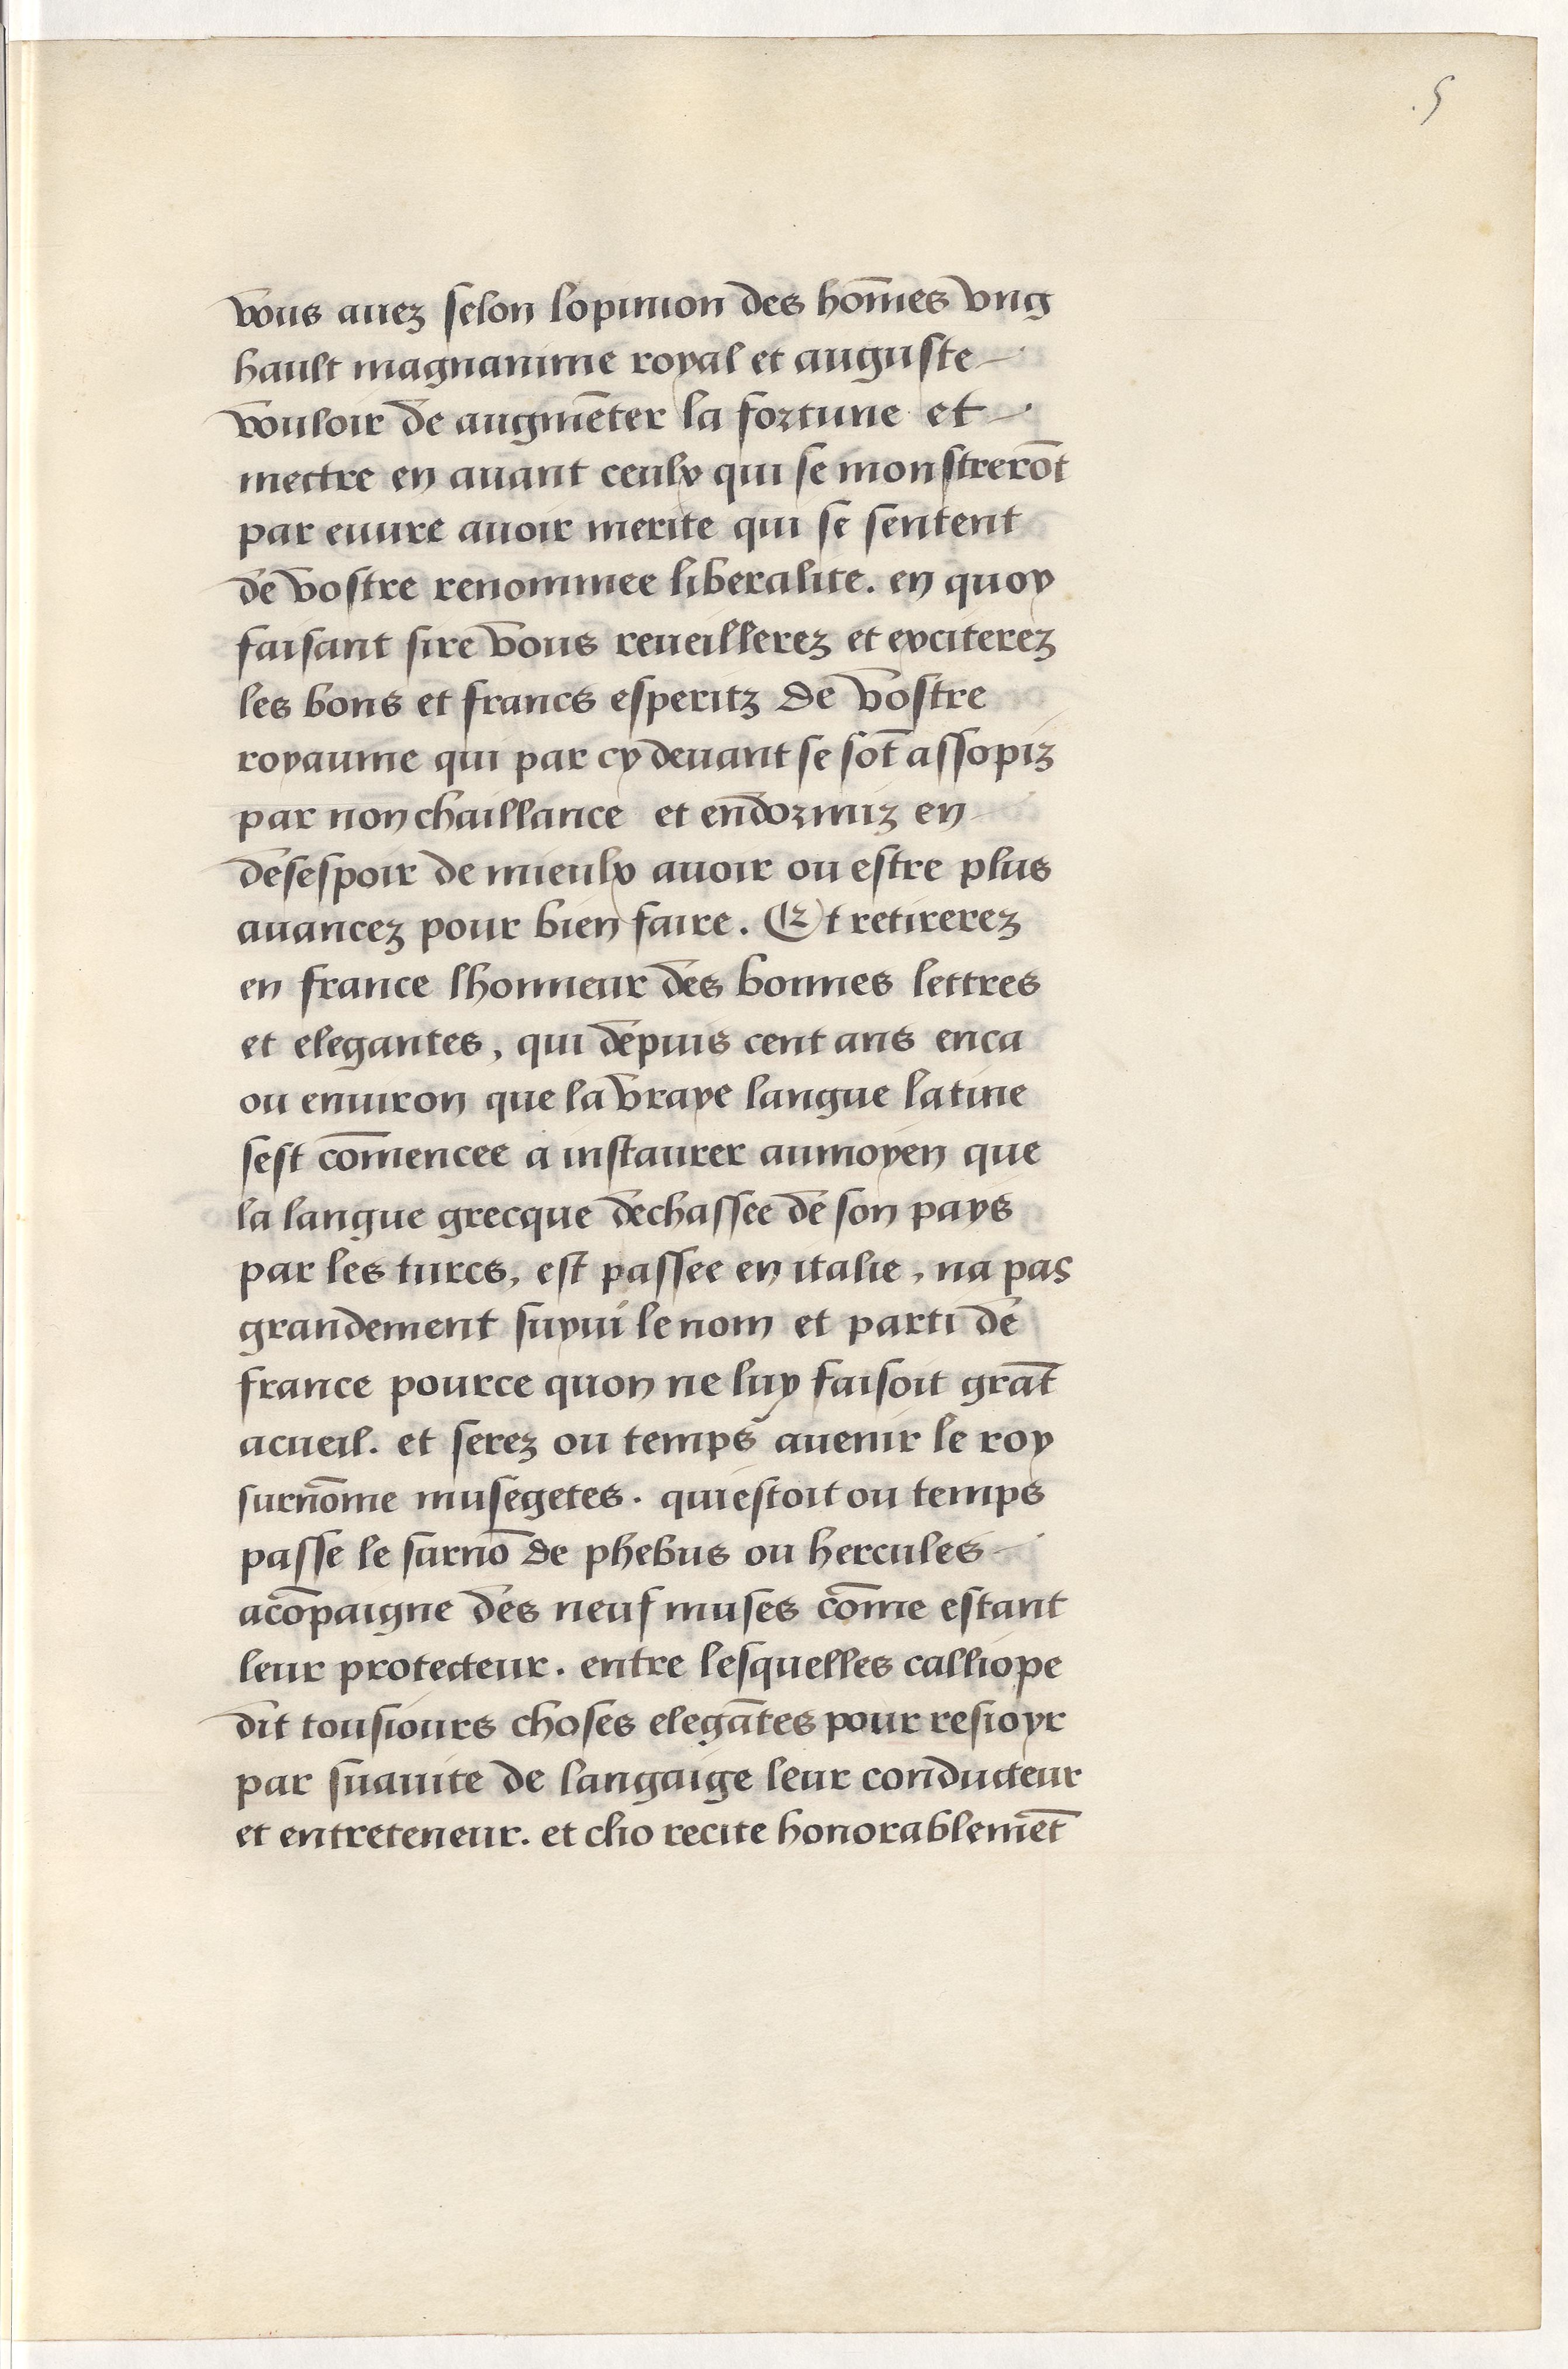 .5
vous auez selon lopinion des hom̄es vng
hault magnanime royal et auguste
vouloir de augmēter la fortune et
mectre en auant ceulx qui se monstrerōt
par euure auoir merite qui se sentent
de vostre renommee liberalite. en quoy
faisant sire vous reueillerez et exciterez
les bons et francs esperitz de vostre
royaume qui par cy deuant se sōt assopiz
par nonchaillance et endormiz en
desespoir de mieulx auoir ou estre plus
auancez pour bien faire. Et retirerez
en france lhonneur des bonnes lettres
et elegantes, qui depuis cent ans enca
ou enuiron que la vraye langue latine
sest com̄encee a instaurer aumoyen que
la langue grecque dechassee de son pays
par les turcs, est passee en italie, na pas
grandement suyui le nom et parti de
france pource quon ne luy faisoit grāt
acueil. et serez ou temps auenir le roy
surnōme musegetes. qui estoit ou temps
passe le surnō de phebus ou hercules
acōpaigne des neuf muses cōme estant
leur protecteur. entre lesquelles calliope
dit tousiours choses elegātes pour resioyr
par suauite de langaige leur conducteur
et entreteneur. et clio recite honorablemēt